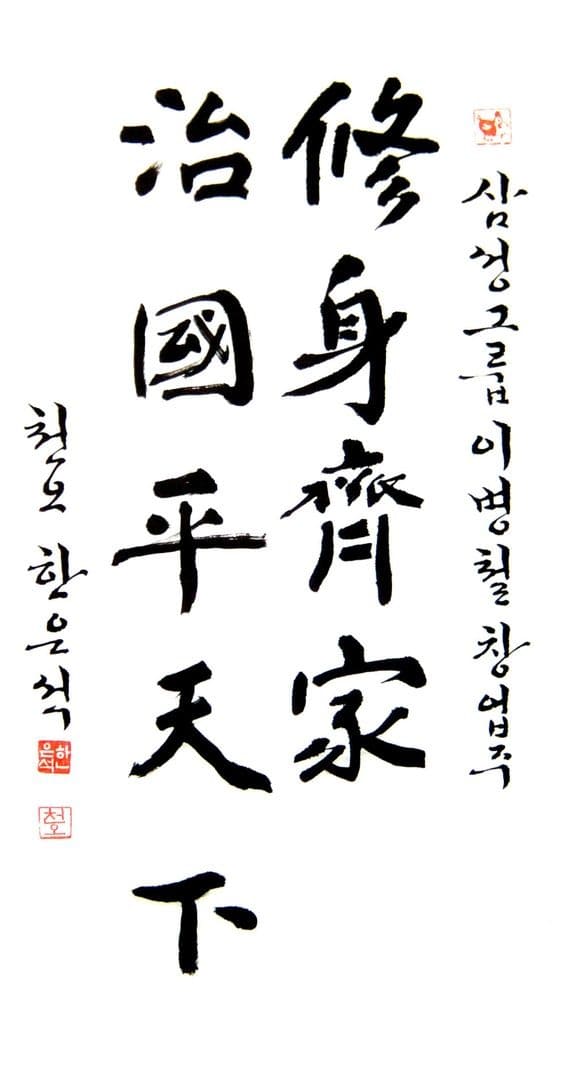 삼성그룹 이병철 창업주
修身齊家
治國平天下
천오 한은석
한은석
천오